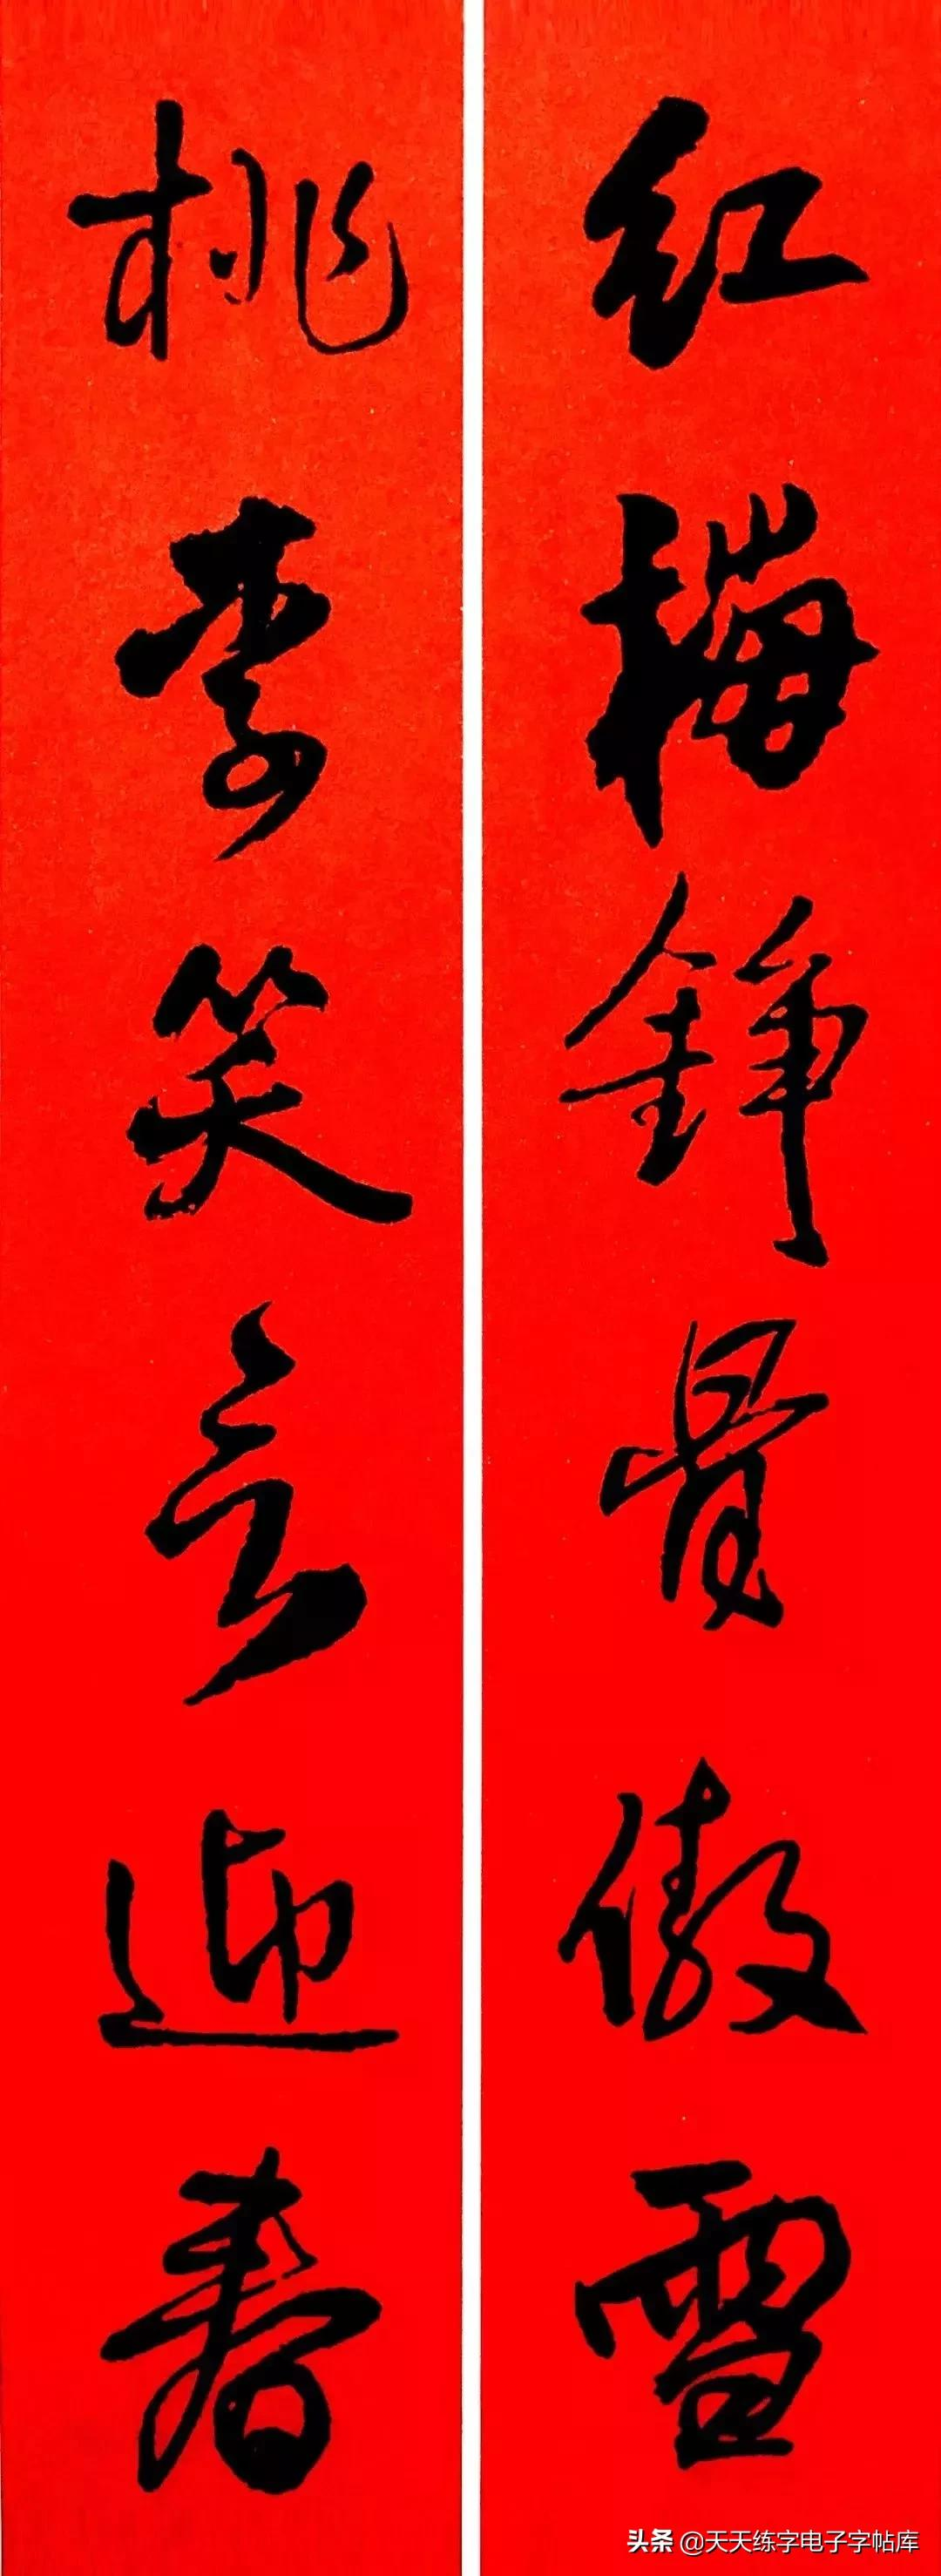 红梅铮骨傲雪
桃李笑言迎春
头条 @天天练字电子字帖库